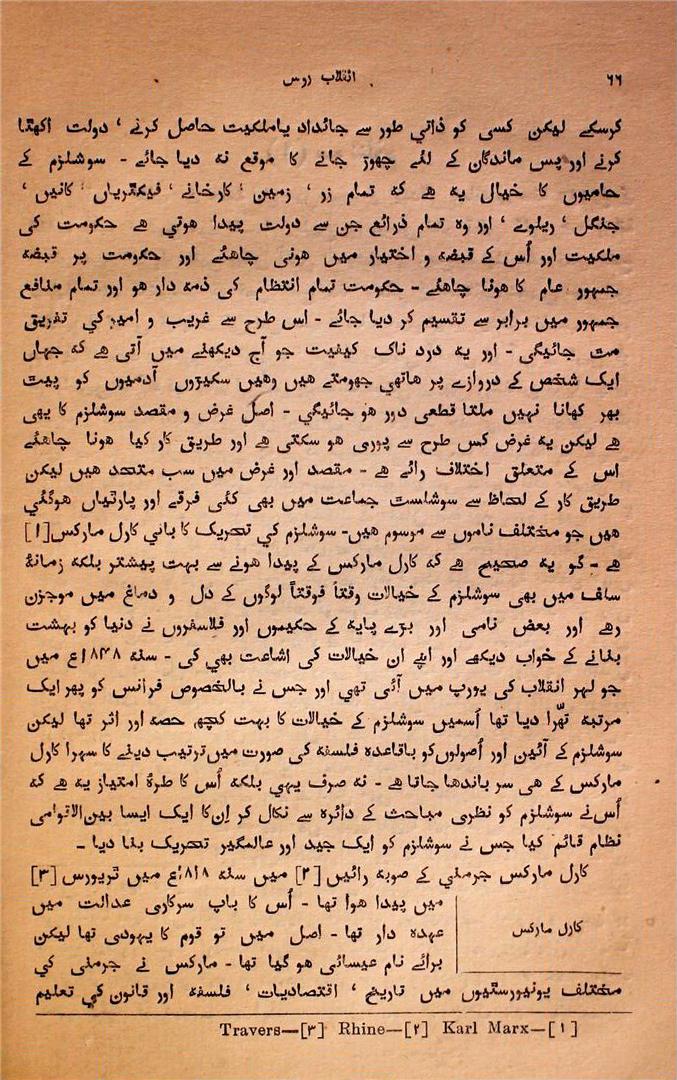 ۶۶
انقلاب روس
کرسکے لیکن کسی کو ذاتي طور سے جائداد یا ملکیت حاصل کرنے ‘ دولت اکھتا
کرنے اور پس ماندگان کے لئے چھوڑ جانے کا موقع نہ دیا جائے - سوشلزم کے
حامیوں کا خیال یہ ھے کہ تمام زر ‘ زمین ‘ کارخانے ‘ فیکٹریاں ‘ کانیں ‘
جنگل ‘ ریلوے ‘ اور وہ تمام ذرائع جن سے دولت پیدا ھوتي ھے حکومت کی
ملکیت اور اُس کے قبضہ و اختیار میں ھونی چاھئے اور حکومت پر قبضہ
جمہور عام کا ھونا چاھئے - حکومت تمام انتظام کی ذمہ دار ھو اور تمام منافع
جمہور میں برابر سے تقسیم کر دیا جائے - اس طرح سے غریب و امیر کي تفریق
مت جائیگی - اور یہ درد ناک کیفیت جو آج دیکھنے میں آتی ھے کہ جہاں
ایک شخص کے دروازے پر ھاتھي جھومتے ھیں وھیں سکیڑوں آدمیوں کو پیت
بھر کھانا نہیں ملتا قطعی دور ھو جائیگي - اصل غرض و مقصد سوشلزم کا یھی
ھے لیکن یہ غرض کس طرح سے پوری ھو سکتی ھے اور طریق کار کیا ھونا چاھئے
اس کے متعلق اختلاف رائے ھے - مقصد اور غرض میں سب متحد ھیں لیکن
طریق کار کے لحاظ سے سوشلست جماعت میں بھی کئی فرقے اور پارتیاں ھوگئي
ھیں جو مختلف ناموں سے موسوم ھیں- سوشلزم کي تحریک کا باني کارل مارکس[۱]
ھے - گو یہ صحیح ھے کہ کارل مارکس کے پیدا ھونے سے بہت پیشتر بلکہ زمانۂ
سلف میں بھی سوشلزم کے خیالات وقتاً فوقتاً لوگوں کے دل و دماغ میں موجزن
رھے اور بعض نامی اور بڑے پایہ کے حکیموں اور فلاسفروں نے دنیا کو بہشت
بنانے کے خواب دیکھے اور اپنے ان خیالات کی اشاعت بھي کی - سنہ ۱۸۴۸ع میں
جو لہر انقلاب کی یورپ میں آئی تھي اور جس نے بالخصوص فرانس کو پھر ایک
مرتبہ تھرّا دیا تھا اُسمیں سوشلزم کے خیالات کا بہت کچھ حصہ اور اثر تھا لیکن
سوشلزم کے آئین اور اُصولوں کو باقاعدہ فلسفہ کی صورت میں ترتیب دینے کا سہرا کارل
مارکس کے ھی سر باندھا جاتا ھے - نہ صرف یہي بلکہ اُس کا طرۂ امتیاز یہ ھے کہ
اُس نے سوشلزم کو نظری مباحث کے دائرہ سے نکال کر اِن کا ایک ایسا بین الاقوامی
نظام قائم کیا جس نے سوشلزم کو ایک جید اور عالمگیر تحریک بنا دیا -
کارل مارکس جرمنی کے صوبہ رائین [۲] میں سنہ ۱۸۱۸ع میں تریورس [۳]
کارل مارکس
میں پیدا ھوا تھا - اُس کا باپ سرکاری عدالت میں
عہدہ دار تھا - اصل میں تو قوم کا یہودی تھا لیکن
برائے نام عیسائی ھو گیا تھا - مارکس نے جرمنی کي
مختلف یونیورستیوں میں تاریخ ‘ اقتصادیات ‘ فلسفہ اور قانون کي تعلیم
Travers—[۳] Rhine—[۲] Karl Marx—[۱]